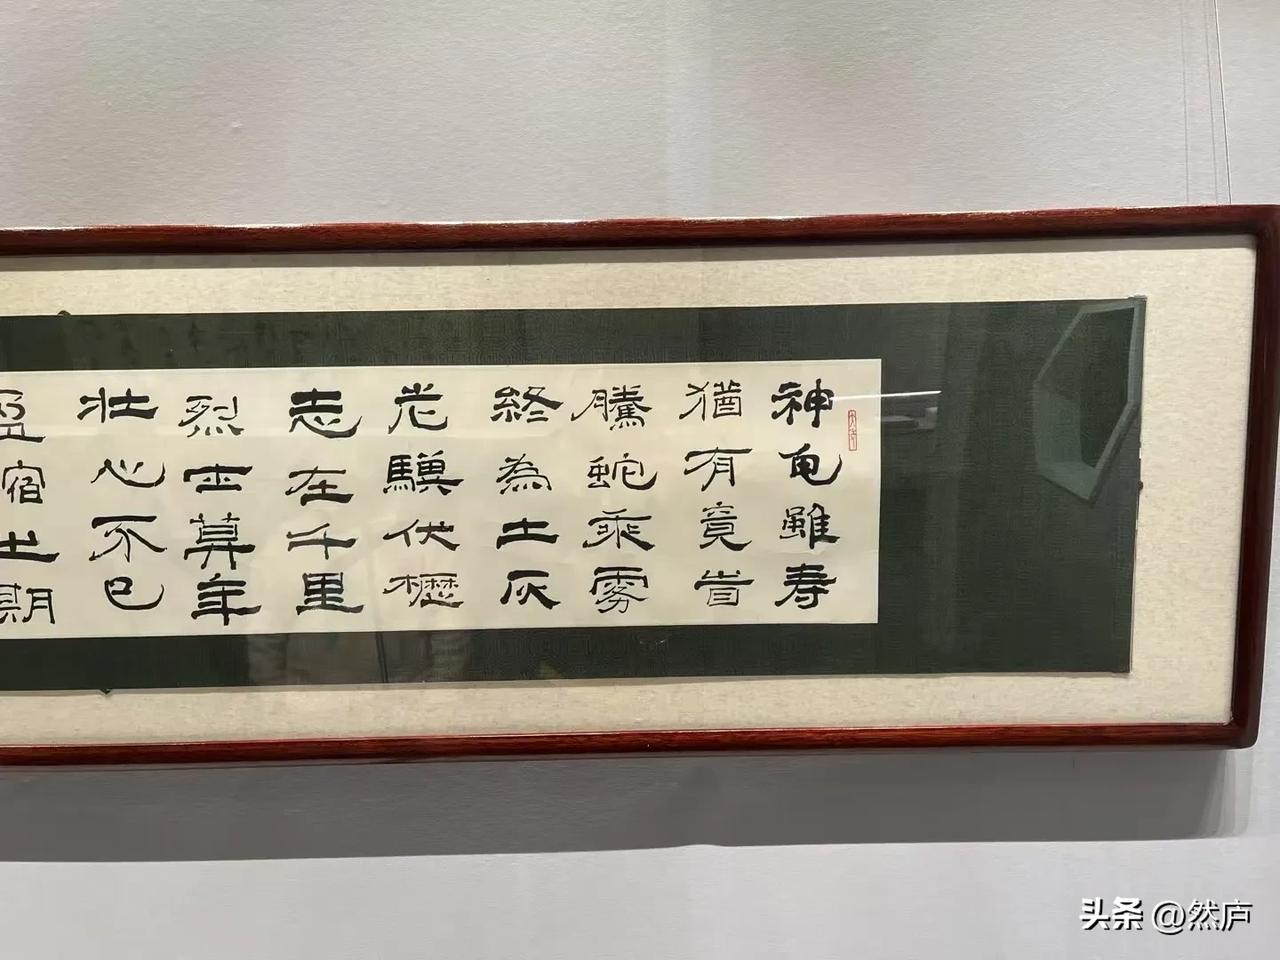 神龟雖寿
猶有竟旹
騰蛇乘霧
終為土灰
老驥伏櫪
志在千里
烈士莫年
壯心不已
盈縮之期
头条 @然庐